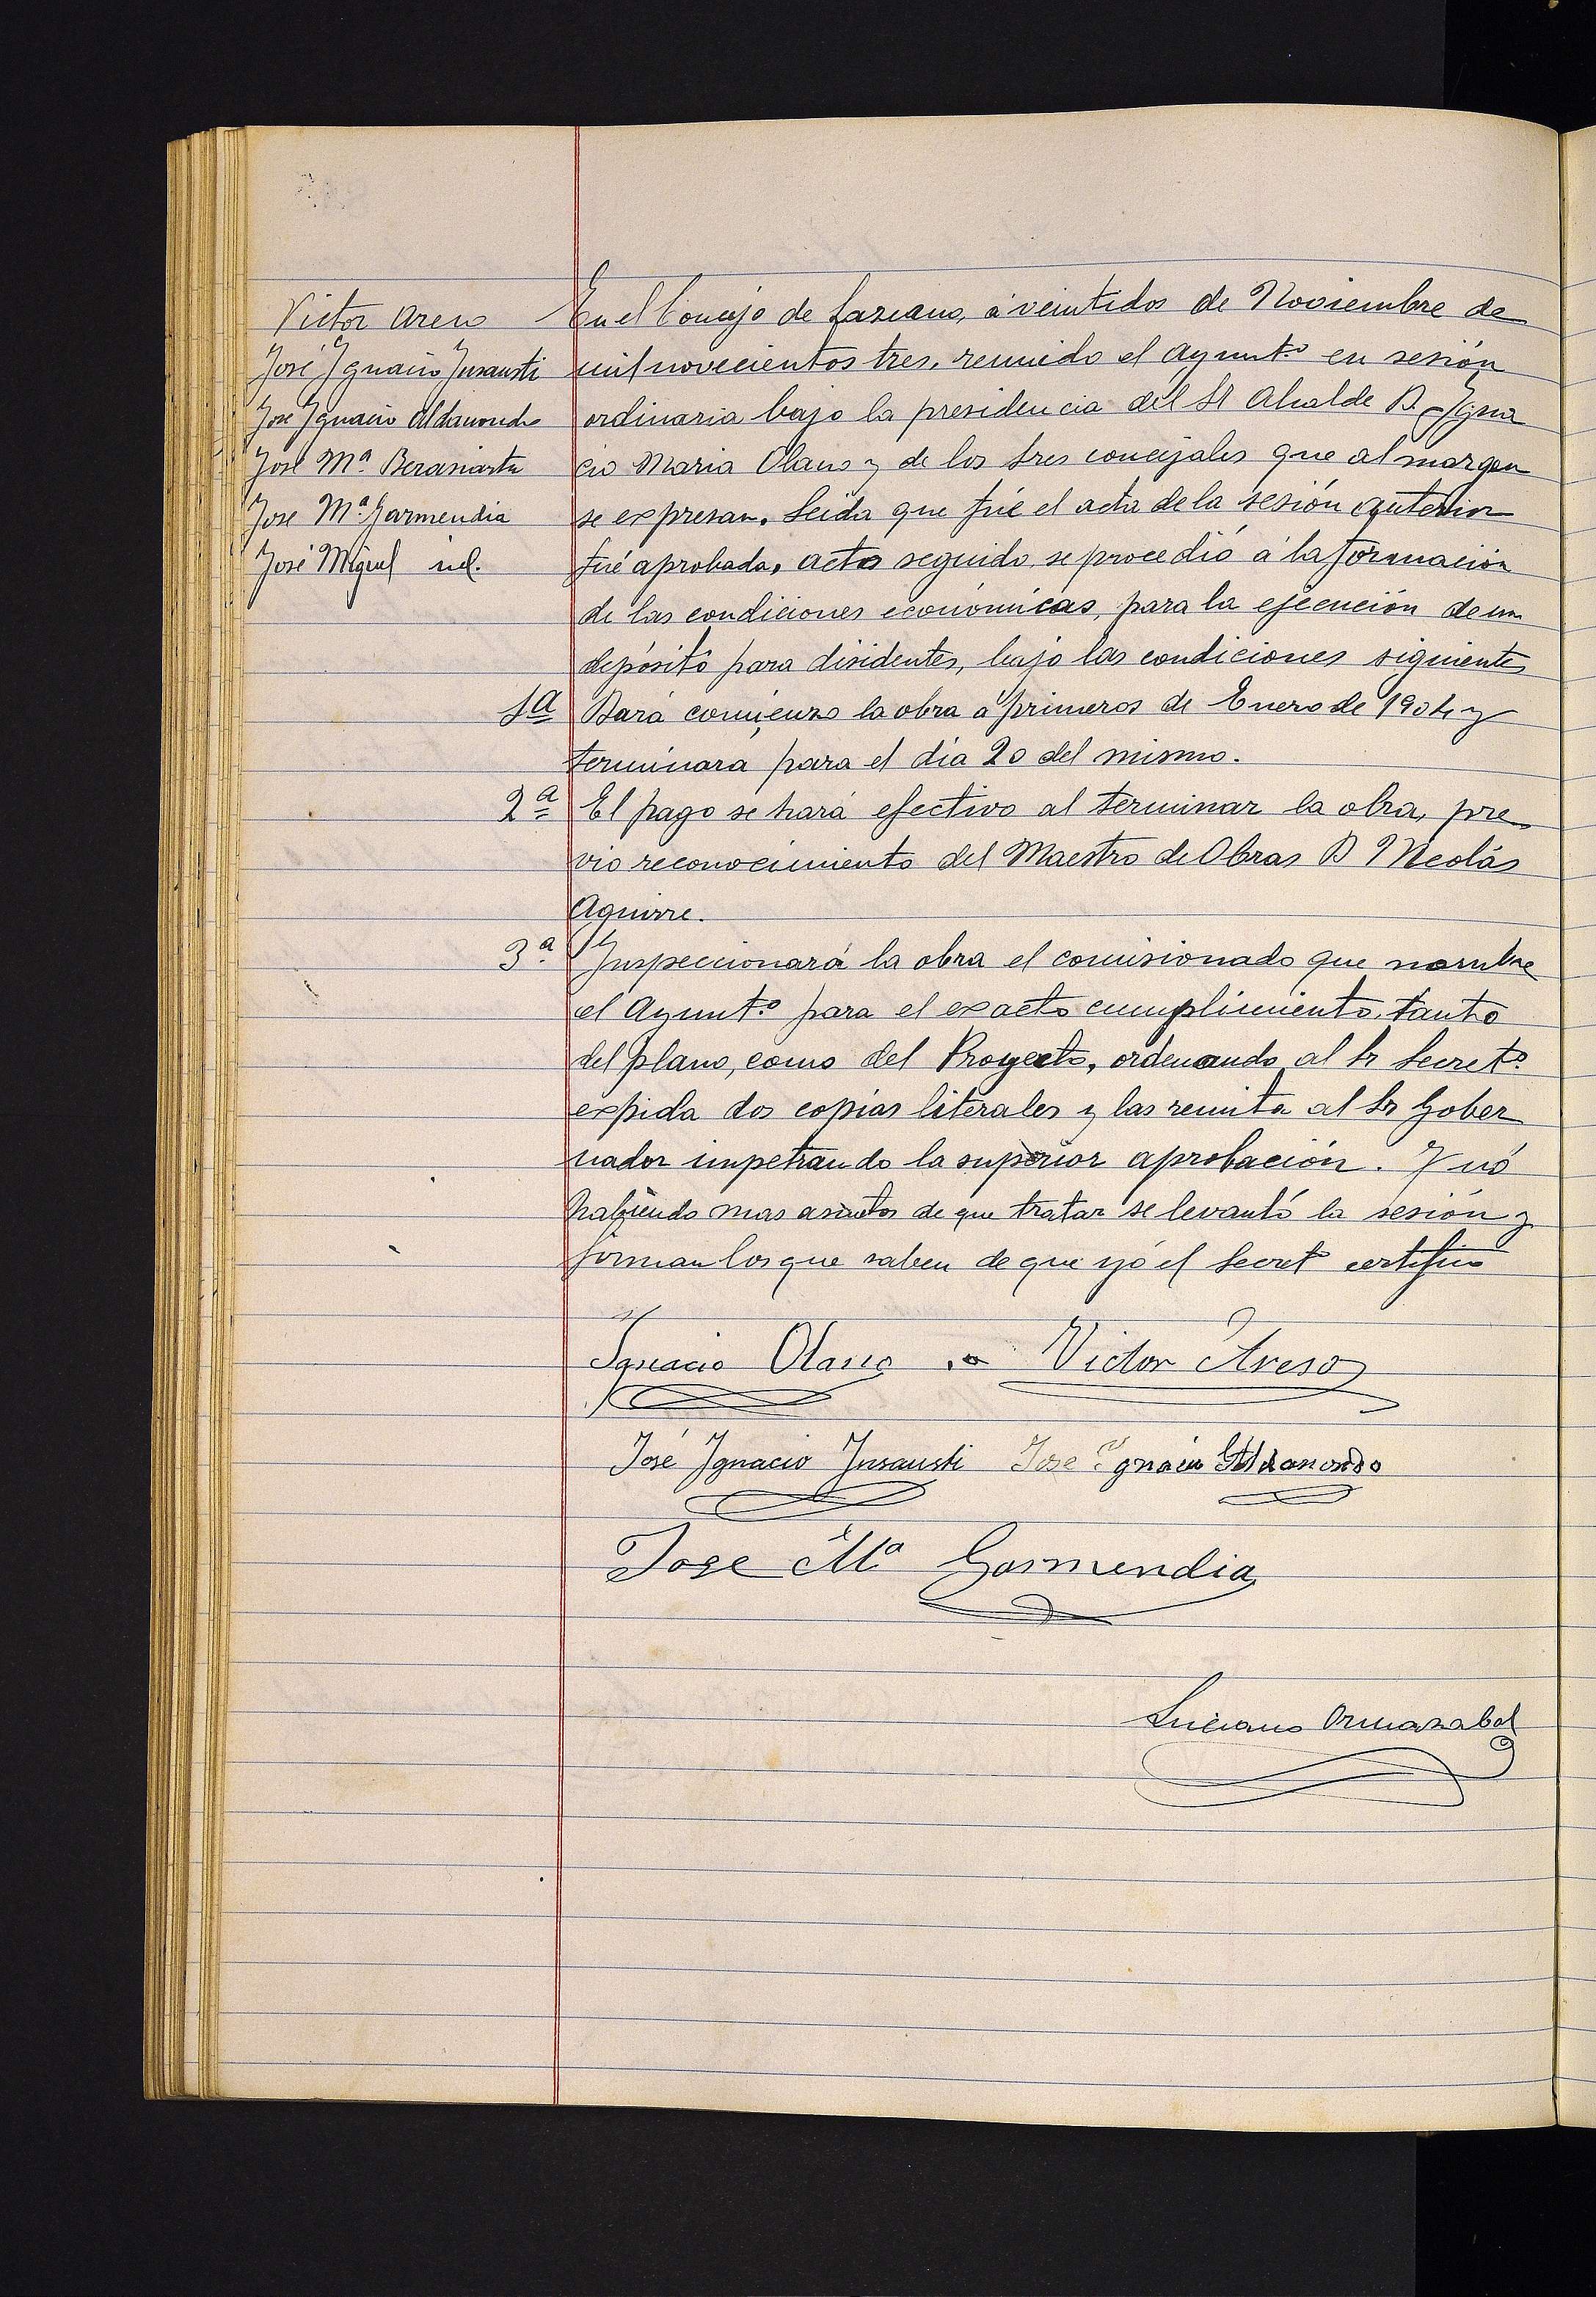 Victor Areso
José Ignacio Insausti
Jose Ignacio Aldamondo
José Mª Berasiartu
Jose Mª Garmendia
José Miguel id.
En el Concejo de Lazcano, á veintidos de Noviembre de
mil novecientos tres, reunido el Ayuntº en sesión
ordinaria bajo la presidencia del Sr Alcalde D. Igna
cio Maria Olano y de los Sres concejales que al margen
se expresan. Leida que fué el acta de la sesión anterior
fué aprobada, acto seguido se procedió á la formación
de las condiciones económicas, para la ejecución de un
depósito para disidentes, bajo las condiciones siguientes
1ª Dará comienzo la obra á primeros de Enero de 1904 y
terminara para el dia 20 del mismo.
2ª El pago se hará efectivo al terminar la obra, pre
vio reconocimiento del Maestro de Obras D Nicolás
Aguirre.
3ª Inspeccionará la obra el comisionado que nombre
el Ayuntº para el exacto cumplimiento, tanto
del plano, como del Proyecto, ordenando al Sr Secretº
expida dos copias literales y las remita al Sr Gober
nador impetrando la superior aprobación. Y nó
habiendo mas asuntos de que tratar se levantó la sesión y
firman los que saben de que yó el Secretº certifico
Ignacio Olano Victor Areso
José Ignacio Insausti Jose Ygnacio Aldamondo
Jose Mª Garmendia
Luciano Ormazabal